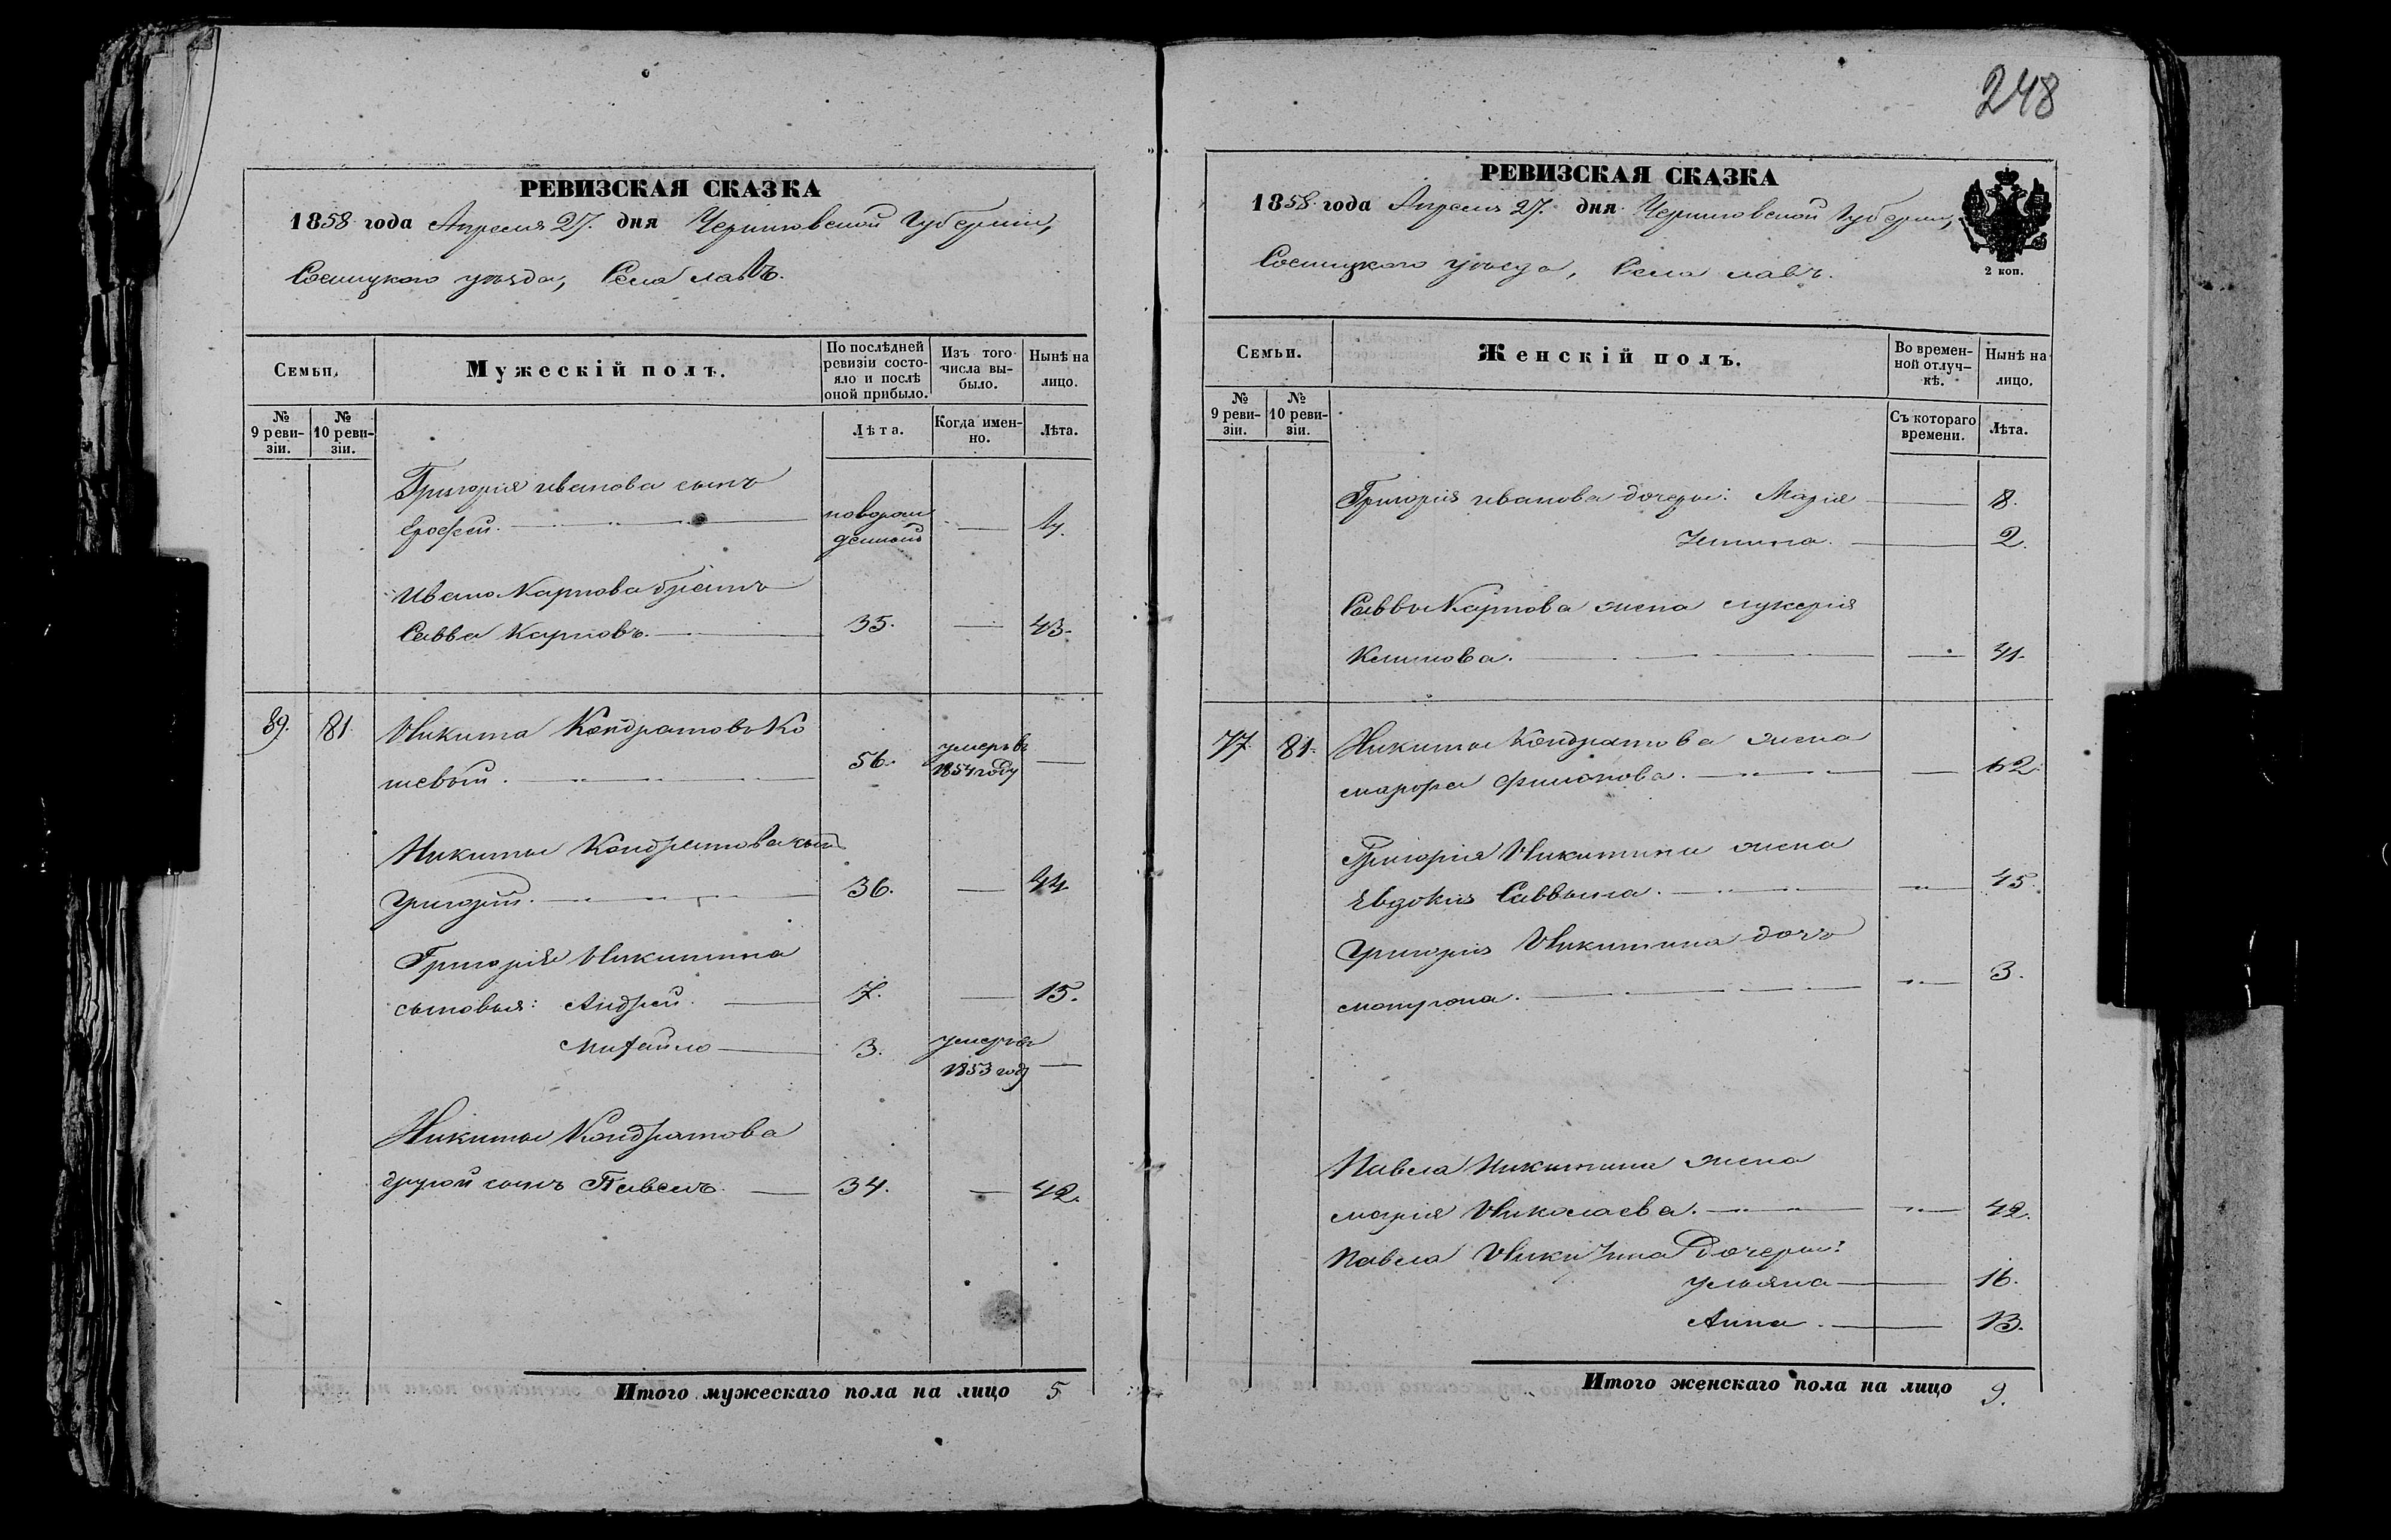 248
РЕВИЗСКАЯ СКАЗКА
1858 года Апреля 27. дня Черниговской Губернии,
Сосницкого уѣзда, Села лавъ.
Семьи.
Мужескій полъ.
По послѣдней ревизіи состояло и послѣ оной прибыло.
Изъ того числа выбыло.
Нынѣ на лицо.
№ 9 ревизіи.
№ 10 ревизіи.
Лѣта.
Когда именно.
Лѣта.
Григорія иванова сынъ
Ерофей. новорожденный
Ивана Карпова братъ
Савва Карповъ. 35. 43.
89. 81. Никита Кондратовъ Ко
шевый. 56. умеръ въ 1854 году
Никиты Кондратова сынъ
Григорій. 36. 44
Григорія Никитина
сыновья: Андрей. 7. 15.
Михайло 3. умеръ въ 1853 году
Никиты Кондратова
другой сынъ Павелъ. 34. 42.
Итого мужескаго пола на лицо 5
РЕВИЗСКАЯ СКАЗКА
1858 года Апреля 27. дня Черниговской Губернии,
Сосницкого уѣзда, Села лавъ.
2 коп.
Семьи.
Женскій полъ.
Во временной отлучкѣ.
Нынѣ на лицо.
№ 9 ревизіи.
№ 10 ревизіи.
Съ котораго времени.
Лѣта.
Григорія иванова дочери: Марія 8.
Устина. 2.
Саввы Карпова жена глукерія
Климова. 41.
77. 81. Никиты Кондратова жена
марфа филонова. 62.
Григорія Никитина жена
Евдокия Саввына. 45.
Григорія Никитина дочь
мотрона. 3.
Павла Никитина жена
марія Николаева. 42.
Павла Никитина Дочери:
ульяна 16.
Анна. 13.
Итого женскаго пола на лицо 9.